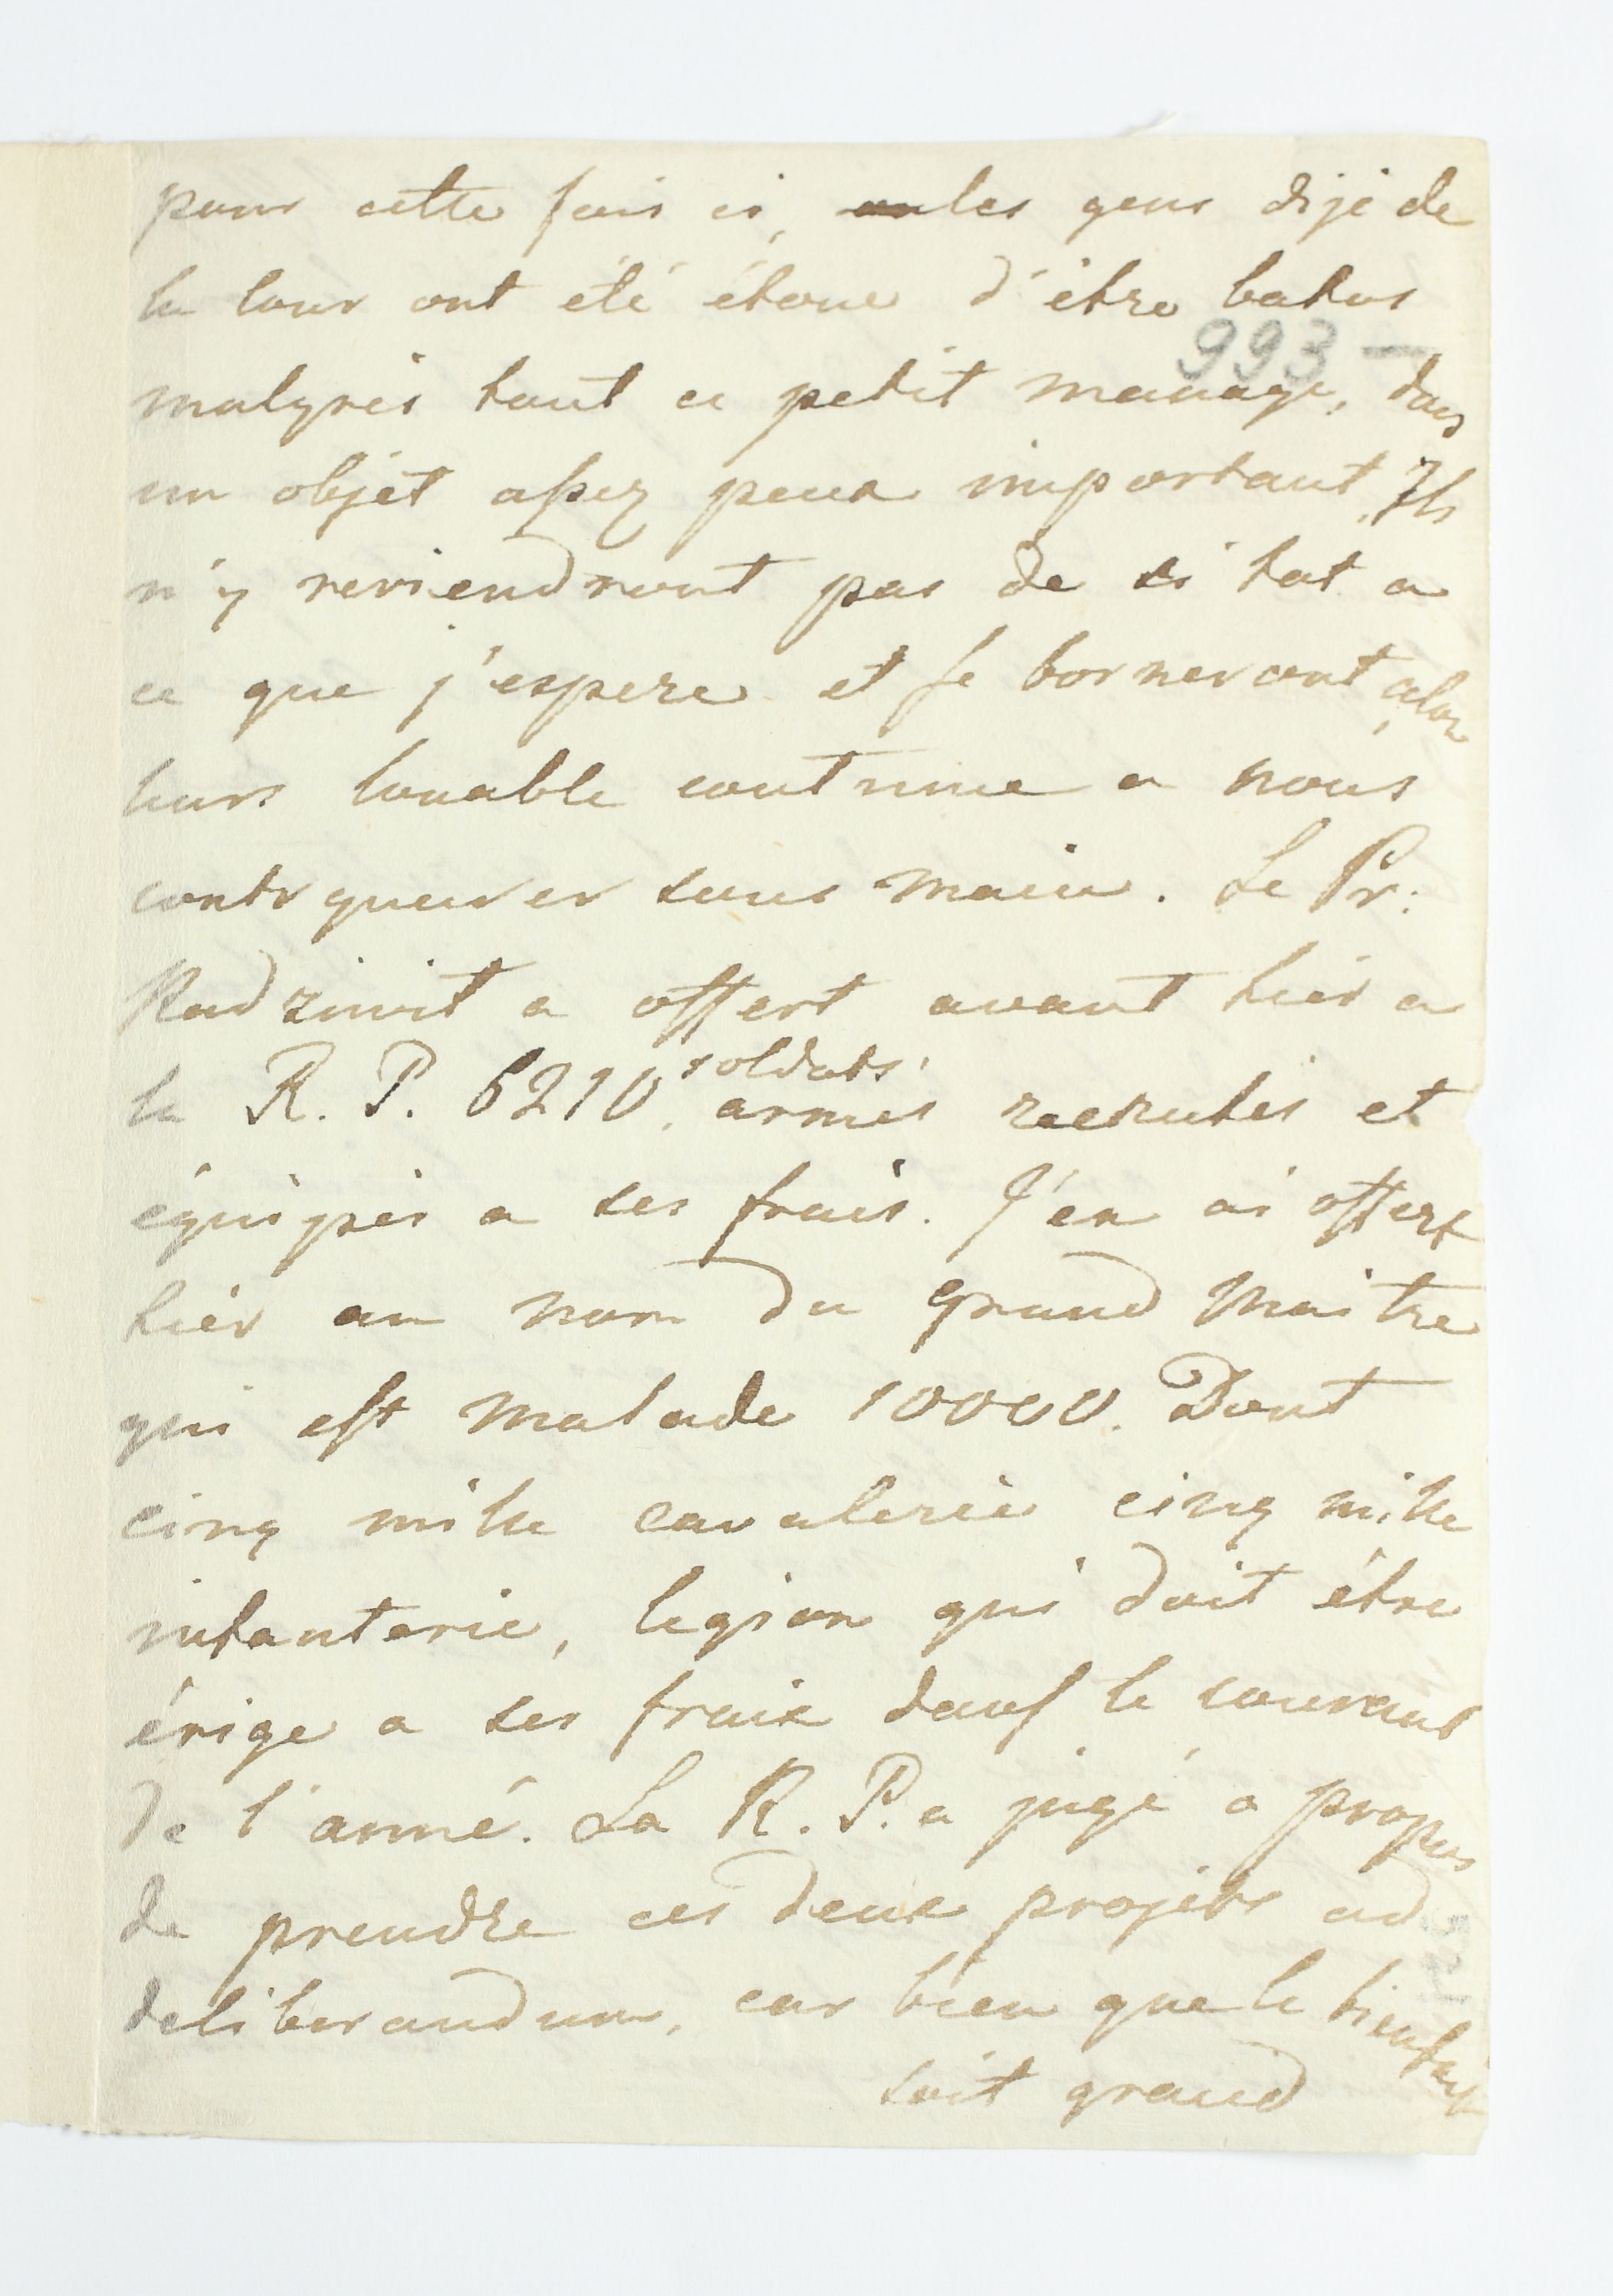 pour cette fois ci, les gens dijé de
la cour ont été étoné d'étre batus
993 —
malgrés tout ce petit manage, dans
un objét assez peux important. Ils
n'y reviendront pas de si tot a
ce que j'espere et se borneront selon
leurs louable coutume a nous
contrquerer sous main. Le Pr:
Radziwił a offert avant hiér a
la R. P. 6210. soldats armés recrutés et
équipés a ses frais. J'en ai offert
hiér au nom du grand Maitre
qui est malade 10000. Dont
cinq mille cavalerie cinq mille
infanterie, legion qui doit étre
érige a ses fraix dans le courant
de l'anné. La R. P. a jugé a propos
de prendre ces deux projéts ad
deliberandum, car bien que le bienfait
soit grand